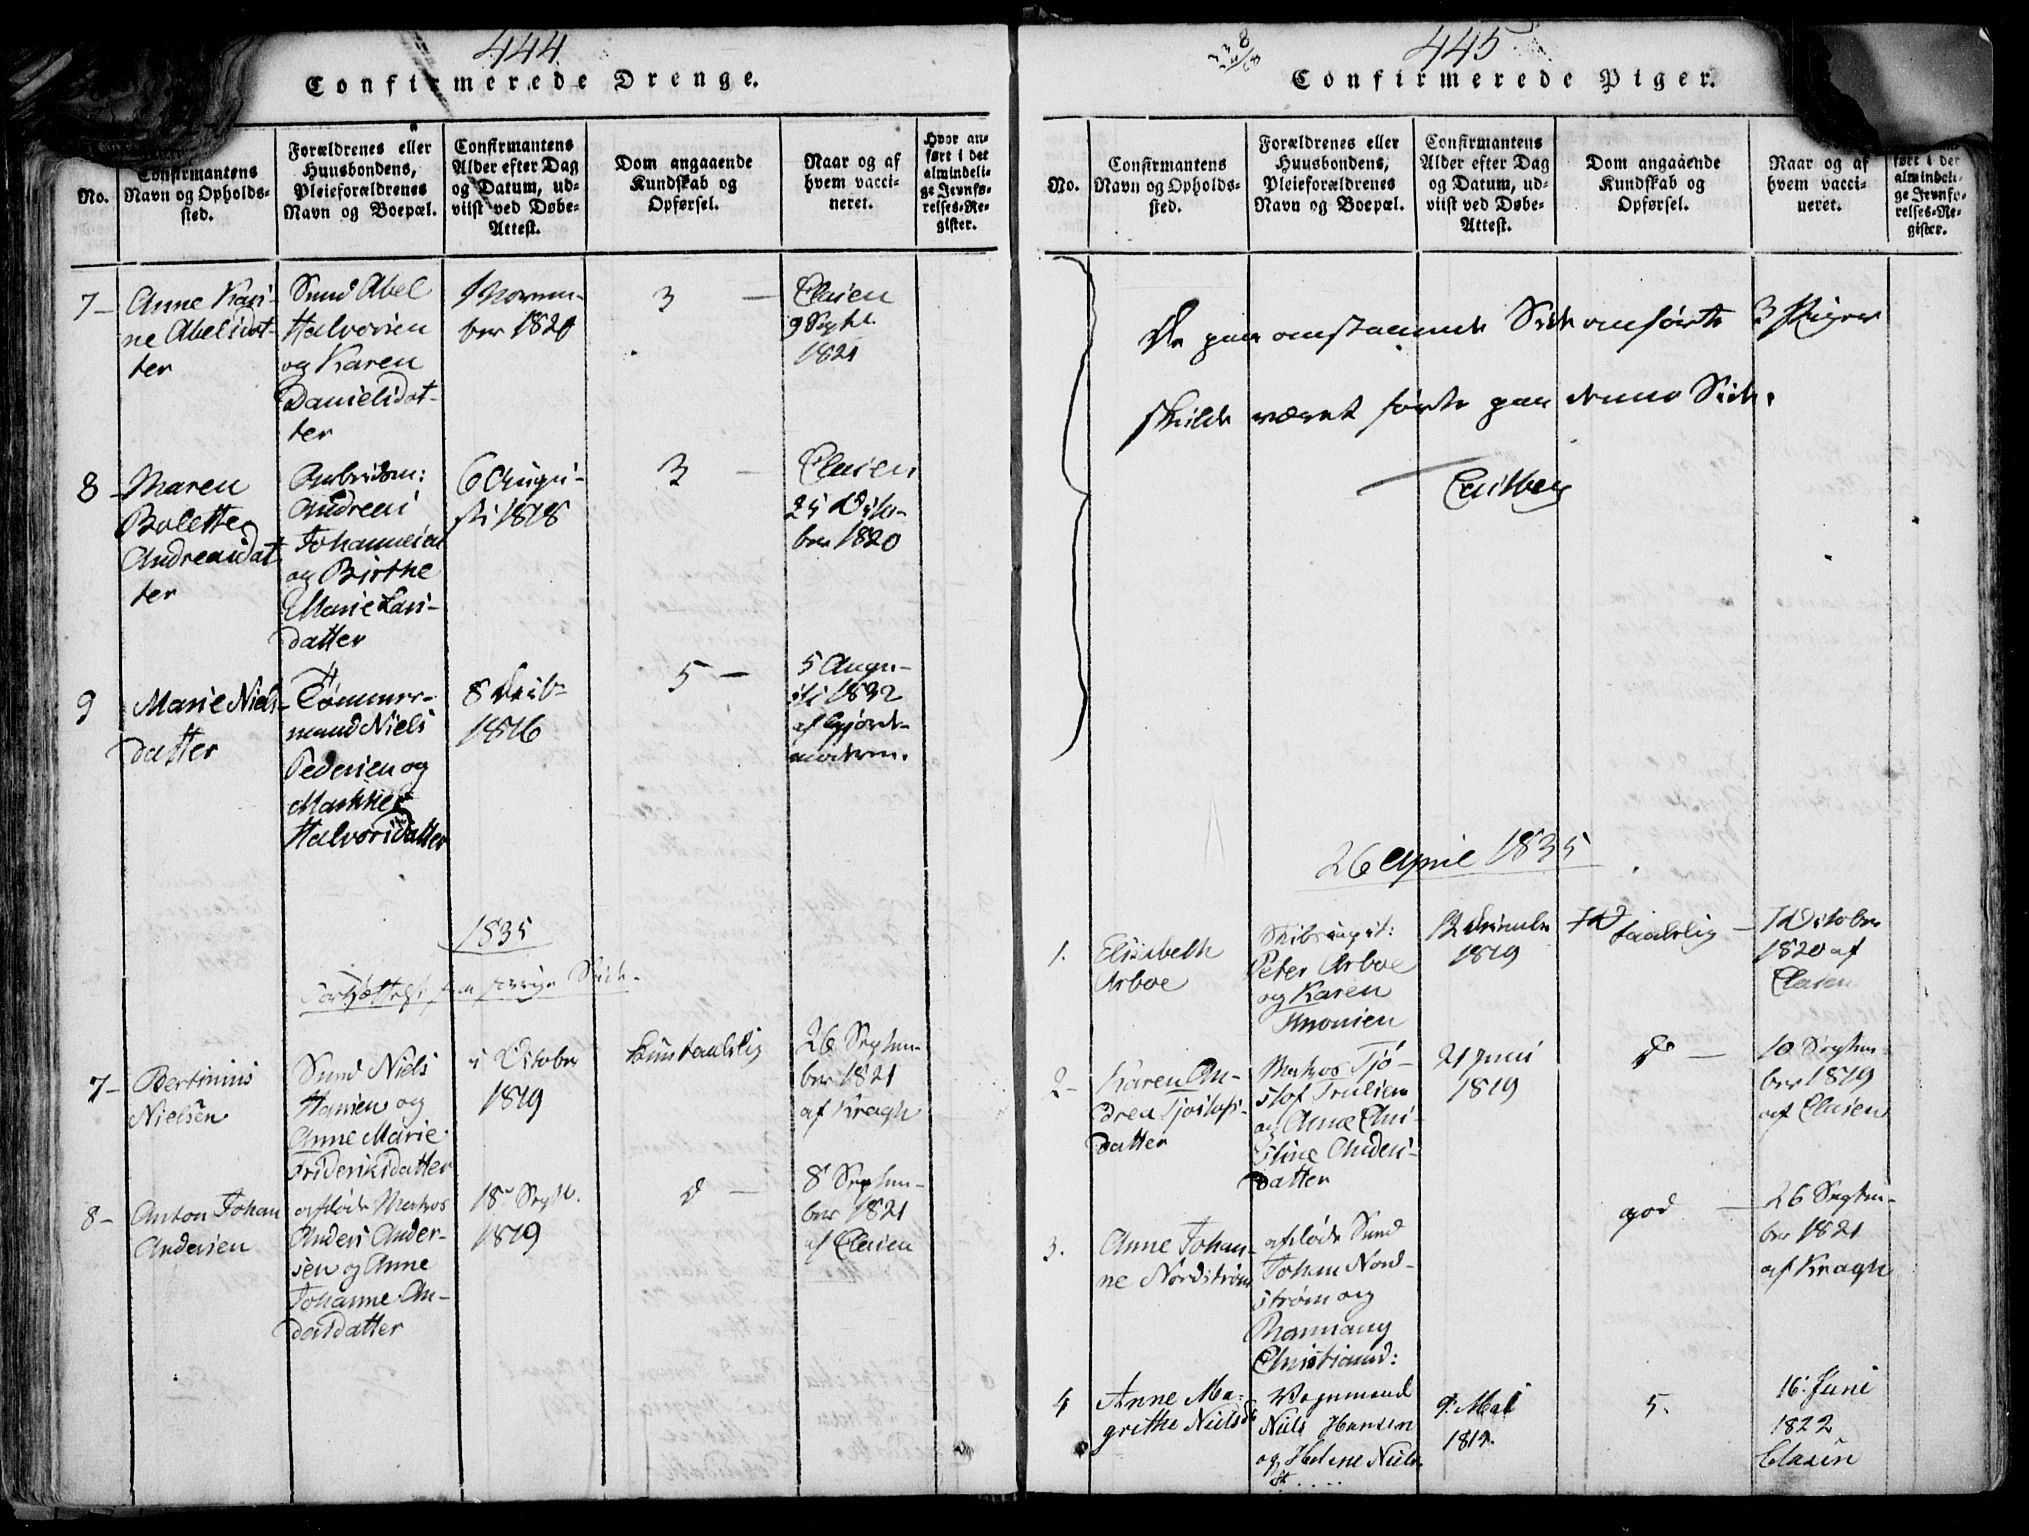 444
Confirmerede Drenge.
No.
Confirmantens
Navn og Opholds-
sted.
Forældrenes eller
Huusbondens,
Pleieforældrenes
Navn og Boepæl.
Confirmantens
Alder efter Dag
og Datum, ud-
viist ved Døbe-
Attest.
Dom angaaende
Kundskab og
Opførsel.
Naar og af
hvem vacci-
neret.
Hvor an-
ført i det
almindeli-
ge Jevnfø-
relses-Re-
gister.
7 -
Anne Kari-
ne Abelsdat-
ter
Smed Abel
Halvorsen
og Karen
Danielsdat-
ter
9 Novem-
ber 1820
3 -
Clasen
9 Septbr.
1821
8 -
Maren
Bolette
Andreasdat
ter
Arbeidsm:
Andreas
Johannesen
og Birthe
Marie Lars-
datter
6 Augu-
sti 1818
3 -
Clasen
25 Octo-
ber 1820
9
Marie Niels-
datter
Tømmer-
mand Niels
Pedersen og
Marthe
Halvorsdatter
8
1816
5 -
5 Augu-
sti 1832
af Gjorde-
moderen.
1835
Fortsættelse fra forrige Side.
7 -
Bertinius
Nielsen
Smed Niels
Hansen og
Anne Marie
Frideriksdatter
5 October
1819
Kun taalelig
26 Septem-
ber 1821
af Kragh
8 -
Anton Johan
Andersen
afdøde Matros
Anders Ander-
sen og Anne
Johanne An-
dersdatter
18 Septbr.
1819
d -
8 Septem-
ber 1821
af Clasen
445
Confirmerede Piger.
No.
Confirmantens
Navn og Opholds-
sted.
Forældrenes eller
Huusbondens,
Pleieforældrenes
Navn og Boepæl.
Confirmantens
Alder efter Dag
og Datum, ud-
viist ved Døbe-
Attest.
Dom angaaende
Kundskab og
Opførsel.
Naar og af
hvem vacci-
neret.
ført i det
almindeli-
ge Jevnfø-
relses-Re-
gister.
De paa omstaaende Side anførte 3 Piger
skulde været førte paa denne Side.
26 April 1835
1.
Elisabeth
Arboe
Skibscapit:
Peter Arboe
og Karen
12 Decembr
1819
taalelig -
7 October
1820 af
Clasen
2 -
Karen An-
drea Tjostolfs-
datter
Matros Tjo-
stof Trulsen
og Anne Chri-
stine Anders-
datter
21 Juni
1819
d -
10 Septem-
ber 1819
af Clasen
3.
Anne Johan-
ne Nordstrøm
afdøde Smed
Johan Nord-
strøm og
Christiansd:
god -
26 Septem-
ber 1821
af Kragh
4
Anne Ma-
grethe Nielsd
Vognmand
Niels Hansen
og Helene Niels-
9. Mai
1819.
5.
16. Juni
1822
Clasen